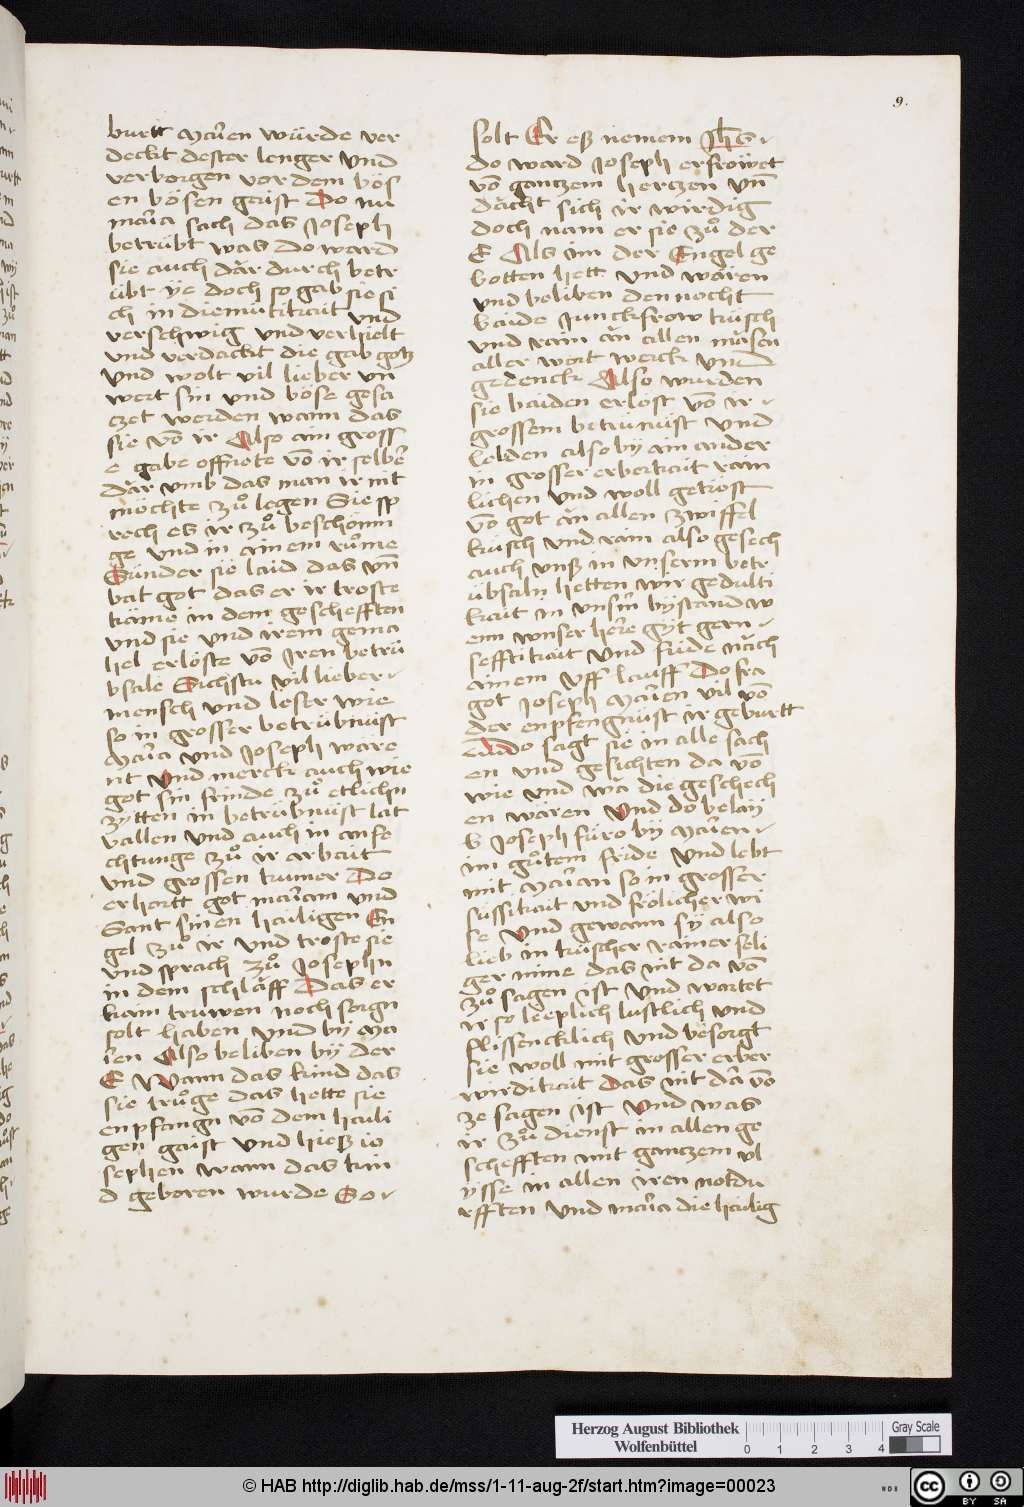 9.
burtt Marien würde ver
deckt dester lenger vnd
verborgen vor dem bös
en bösen gaist Do nu
maria sach das Joseph
betrübt was do ward
sie auch dar durch betr
übt ye doch so gab sie si
ch in diemutikait vnd
verschwig vnd verhielt
vnd verdackt die gab gotz
vnd wolt vil lieber vn
wert sin vnd böse gesa
czet werden wann das
sie võ ir Also ain gross
e gabe offnote võ ir selber
dar vmb das man ir nit
möchte zů legen Sie sp
rech es ir zů beschönin
ge vnd in ainem růme
Sünder sie laid das vñ
bat got das er ir troste
käme in dem geschefften
vnd sie vnd irem gema
hel erlöste võ Jren betrü
bsale Sichstu vil lieber
mensch vnd leser wie
so in grosser betrübnüst
Maria vnd Joseph ware
nt vnd merck auch wie
got sin fründe zů etlichn
zytten in betrübnüst lat
vallen vnd auch in anfe
chtunge zů ir arbait
vnd grossen trumer Do
erhortt got mariam vnd
Sant sinen hailigen En
gel zů ir vnd troste sie
vnd sprach zů Josephn
in dem schlaff Das er
kain truwen noch sorgn
solt haben vnd bij Ma
rien Also beliben bÿ der
E Wann das kind das
sie trůge das hette sie
enpfangn võ dem haili
gen gaist vnd hiesz io
sephen wann das kin
d geboren wurde So
solt Er esz nemem Jhs
do ward Joseph erfröwet
võ gantzem hertzen vñ
dacht sich ir wirdig
doch nam er sie zů der
E Als im der Engel ge
botten hett vnd waren
vnd beliben dennocht
baide Junckfrow küsch
vnd rain an allen mäsen
aller wort werck vnd
gedenck Also wurden
sie baiden erlöst võ ir
grossem betrübnüst vnd
leiden also bÿ ain ander
in grosser erberkait rain
lichen vnd woll getröst
võ got an allen zwiffel
küsch vnd rain also gesech
auch vnsz in vnserm betr
übsaln hetten wir gedulti
kait in vnsrn bystand w
enn wnser here gÿt gern
sefftikait vnd fride nach
ainem vff lauff Do fra
got Joseph Marien vil võ
der enpfengnüst ir geburtt
Do sagt sie in alle sach
en vnd gesichten da võ
wie vnd wa die geschech
en wären vnd do belaÿ
b Joseph füro bÿ Marien
im gůtem fride vnd lebt
mit Marian so in grosser
süssikait vnd frölicher wi
se vnd gewann sÿ also
lieb in küscher rainer seli
ger mine das nit da võ
zů sagen ist vnd wartet
ir so lieplich lustlich vnd
flissencklich vnd besorgt
sie woll mit grosser erber
wirdikait Das nit da võ
ze sagen ist vnd was
ir zů dienst in allen ge
schefften mit gantzem vl
ÿsse in allen iren notdu
rfften vnd maria die hailig
Herzog August Bibliothek
Wolfenbüttel
0 1 2 3 4
Gray Scale
© HAB http://diglib.hab.de/mss/1-11-aug-2f/start.htm?image=00023
cc BY SA